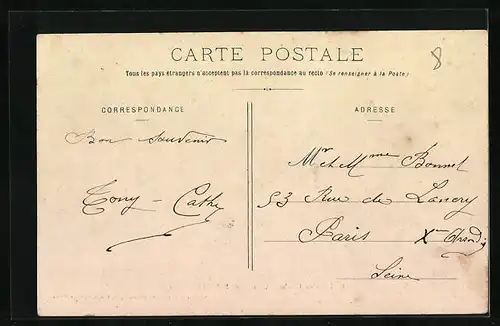 CARTE POSTALE
Tous les pays étrangers n'acceptent pas la correspondance au recto (Se renseigner à la Poste.)
8
CORRESPONDANCE
Bon souvenir
Tony - Cathy
ADRESSE
Mr et Mme Bonnet
53 Rue de Lancry
Paris Xme Arrond
Seine